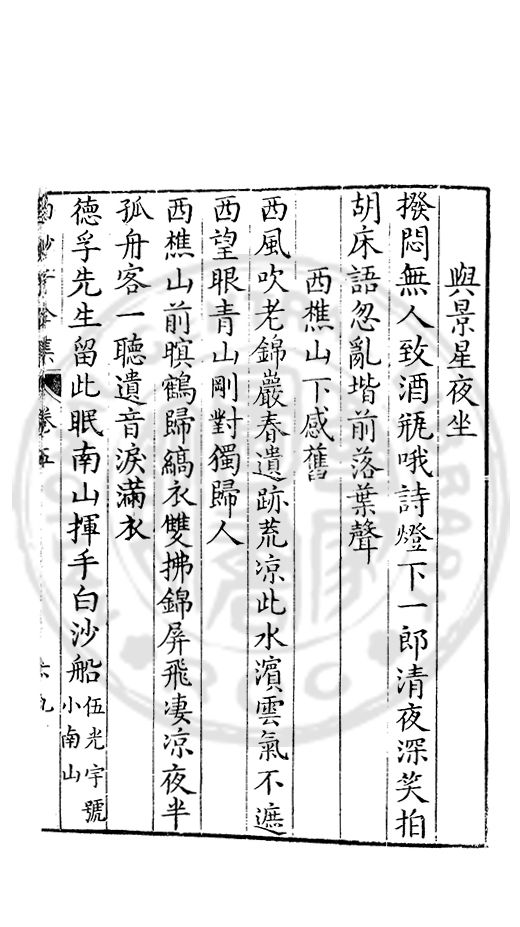 與景星夜坐
撥悶無人致酒瓶哦詩燈下一郎清夜深笑拍
胡床語忽亂堦前落葉聲
西樵山下感舊
西風吹老錦巖春遺跡荒凉此水濵雲氣不遮
西望眼青山剛對獨歸人
西樵山前暝鶴歸縞衣雙拂錦屏飛凄凉夜半
孤舟客一聽遺音淚滿衣
德孚先生留此眠南山揮手白沙船伍光宇號
小南山
白沙子全集 卷五 六九